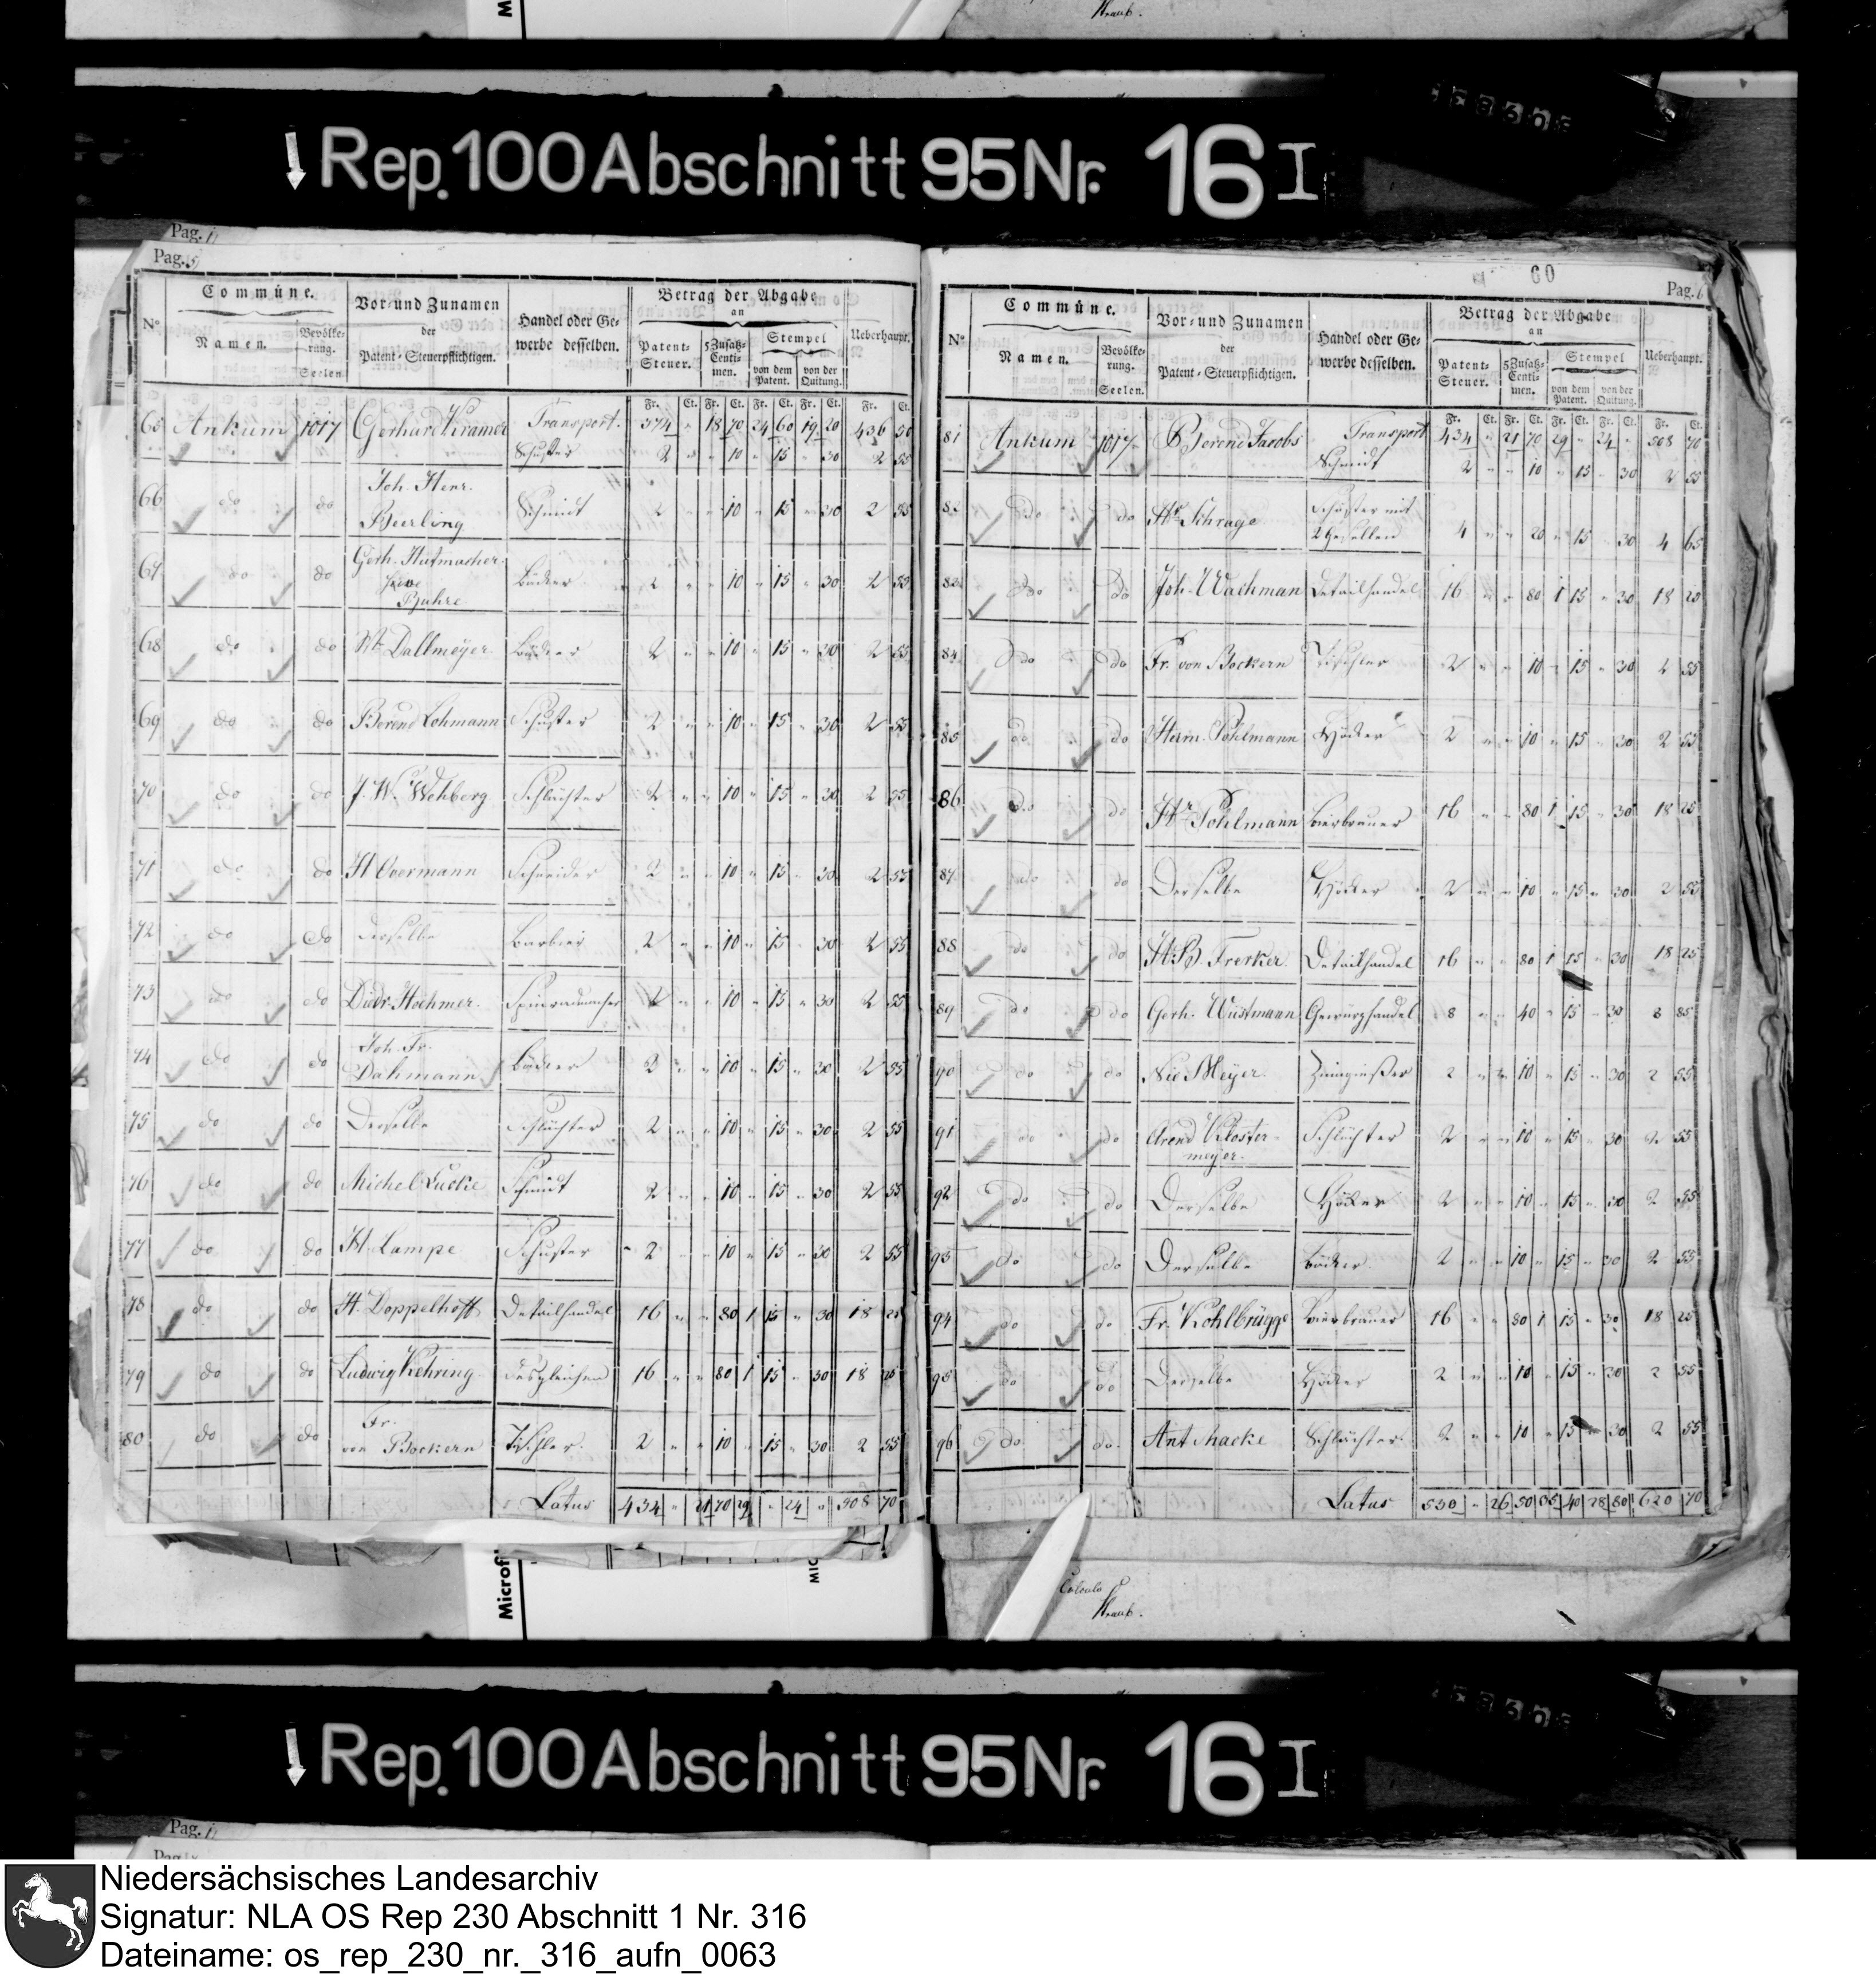 Kraus.
↓ Rep. 100 Abschnitt 95 Nr. 16 I
Pag. 5
Commüne. Vor- und Zunamen der Patent-Steuerpflichtigen. Handel oder Gewerbe desselben. Betrag der Abgabe an
No Namen. Bevölkerung. Seelen. Patent-Steuer. 5 Zusatz-Centimen. Stempel von dem Patent. von der Quitung. Ueberhaupt.
Fr. Ct. Fr. Ct. Fr. Ct. Fr. Ct. Fr. Ct.
Transport. 374 " 18 70 24 60 19 20 436 50
65 Ankum 1017 Gerhard Kramer Schuster 2 " " 10 " 15 " 30 2 55
66 do do Joh. Henr. Beerling Schmidt 2 " " 10 " 15 " 30 2 55
67 do do Gerh. Hutmacher Buhre Bäcker 2 " " 10 " 15 " 30 2 55
68 do do Dallmeyer Bäcker 2 " " 10 " 15 " 30 2 55
69 do do Berend Lohmann Schuster 2 " " 10 " 15 " 30 2 55
70 do do J. W. Wehberg Schlächter 2 " " 10 " 15 " 30 2 55
71 do do H Overmann Schneider 2 " " 10 " 15 " 30 2 55
72 do do derselbe Barbier 2 " " 10 " 15 " 30 2 55
73 do do 2 " " 10 " 15 " 30 2 55
74 do do Joh. Fr. Dahmann Bäcker 2 " " 10 " 15 " 30 2 55
75 do do Derselbe Schlächter 2 " " 10 " 15 " 30 2 55
76 do do Michel Lücke Schmidt 2 " " 10 " 15 " 30 2 55
77 do do H. Lampe Schuster 2 " " 10 " 15 " 30 2 55
78 do do H. Doppelhoff Detailhandel 16 " " 80 1 15 " 30 18 25
79 do do Ludwig Kehring desgleichen 16 " " 80 1 15 " 30 18 25
80 do do Fr. von Bockern Tischler. 2 " " 10 " 15 " 30 2 55
Latus 434 " 21 70 29 " 24 " 508 70
60
Pag. 6
Commüne. Vor- und Zunamen der Patent-Steuerpflichtigen. Handel oder Gewerbe desselben. Betrag der Abgabe an
No Namen. Bevölkerung. Seelen. Patent-Steuer. 5 Zusatz-Centimen. Stempel von dem Patent. von der Quitung. Ueberhaupt.
Fr. Ct. Fr. Ct. Fr. Ct. Fr. Ct. Fr. Ct.
Transport 434 " 21 70 29 " 24 " 508 70
81 Ankum 1017 Berend Jacobs Schmidt 2 " " 10 " 15 " 30 2 55
82 do do Hr Schrage Schuster mit 2 Gesellen 4 " " 20 " 15 " 30 4 65
83 do do Joh. Wachman Detailhandel 16 " " 80 1 15 " 30 18 25
84 do do Fr. von Bockern Tischler 2 " " 10 " 15 " 30 2 55
85 do do Herm. Pohlmann Höcker 2 " " 10 " 15 " 30 2 55
86 do do Hr Pohlmann Bierbrauer 16 " " 80 1 15 " 30 18 25
87 do do Derselbe Höcker 2 " " 10 " 15 " 30 2 55
88 do do H. B. Frerker Detailhandel 16 " " 80 1 15 " 30 18 25
89 do do Gerh. Wüstmann Gewürzhandel 8 " " 40 " 15 " 30 8 85
90 do do Nic Meyer Zinngießer 2 " " 10 " 15 " 30 2 55
91 do do Arend Klostermeyer. Schlächter 2 " " 10 " 15 " 30 2 55
92 do do Derselbe Höcker 2 " " 10 " 15 " 30 2 55
93 do do Derselbe Bäcker 2 " " 10 " 15 " 30 2 55
94 do do Fr. Kohlbrügge Bierbrauer 16 " " 80 1 15 " 30 18 25
95 do do Derselbe Höcker 2 " " 10 " 15 " 30 2 55
96 do do Ant Macke Schlächter 2 " " 10 " 15 " 30 2 55
Latus 530 " 26 50 35 40 28 80 620 70
Calculo
Kraus.
↓ Rep. 100 Abschnitt 95 Nr. 16 I
Niedersächsisches Landesarchiv
Signatur: NLA OS Rep 230 Abschnitt 1 Nr. 316
Dateiname: os_rep_230_nr._316_aufn_0063